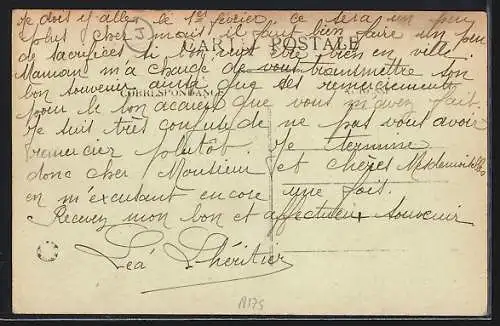 Je dois y aller le 1er février ce sera un peu
plus cher mais il faut bien faire un peu
de sacrifices si l'on veut être bien en ville.
Maman m'a chargé de vous transmettre son
bon souvenir ainsi que ses remerciements
pour le bon accueil que vous m'avez fait.
Je suis très confuse de ne pas vous avoir
remercier plutôt. Je termine
donc cher Monsieur et chères Mesdemoiselles
en m'excusant encore une fois.
Recevez mon bon et affectueux souvenir
Léa Lhéritier
CARTE POSTALE
CORRESPONDANCE
J
A175